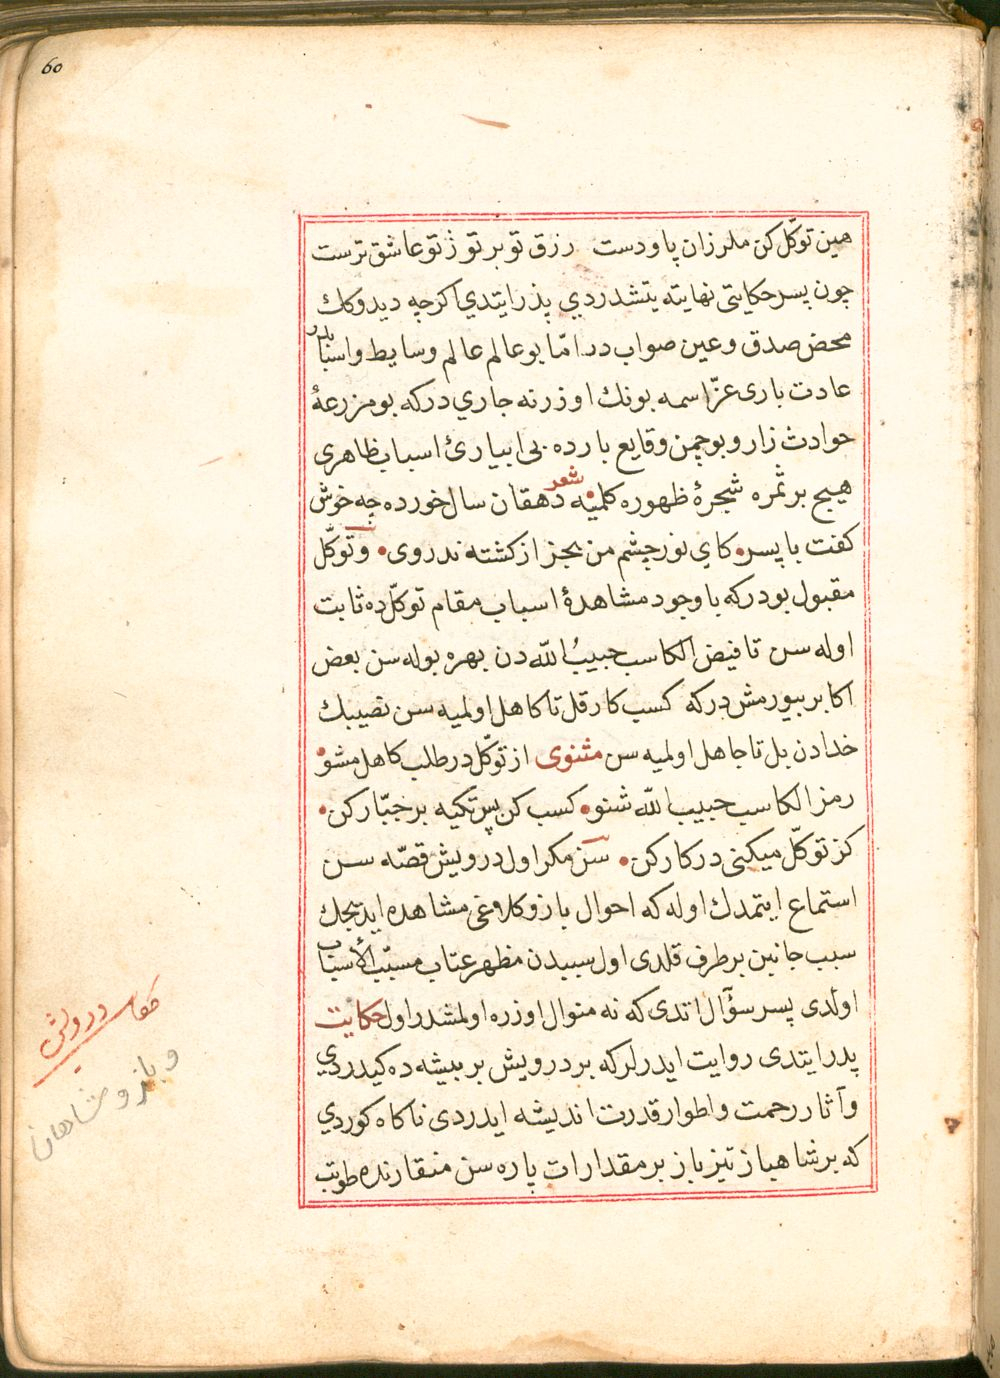 60
هین توكّل كن ملرزان پا و دست رزق تو بر تو ز تو عاشق ترست
چون پسر حكایتی نهایته یتشدردي پدر ایتدي اكرچه دیدوكك
محض صدق و عین صواب در امّا بو عالم عالم وسایط و اسبابدر
عادت باری عزّ اسمه بونك اوزرنه جاري در كه بو مزرعۀ
حوادث زار و بو چمن وقایع بارده بی ابیارئ اسباب ظاهری
هیچ بر ثمره شجرۀ ظهوره كلمیه شعر دهقان سال خورده چه خوش
كفت با پسر • كاي نور چشم من بجز از كشته ندروی • و توكّل
مقبول بودر كه با وجود مشاهدۀ اسباب مقام توكّلده ثابت
اوله سن تا فیض الكاسب حبیبُ اللّه دن بهره بوله سن بعض
اكابر بیورمش در كه كسب كار قل تا كاهل اولمیه سن نصیبك
خدادن بل تا جاهل اولمیه سن مثنوی از توكّل در طلب كاهل مشو •
رمز الكاسب حبیب اللّه شنو • كسب كن پس تكیه بر جبّار كن •
كز توكّل میكنی در كار كن • سن مكر اول درویش قصّه سن
استماع ایتمدك اوله كه احوال باز و كلاوغی مشاهده ایدیجك
سبب جانبین بر طرف قلدی اول سببدن مظهر عتاب مسبّب الأسباب
اولدی پسر سؤال اتدی كه نه منوال اوزره اولمشدر اول حكایت
پدر ایتدی روایت ایدرلر كه بر درویش بر بیشه ده كیدردي
و آثار رحمت و اطوار قدرت اندیشه ایدردی ناكاه كوردي
كه بر شاهباز تیز باز بر مقدار ات پاره سن منقارنده طوتب
درویش
و باز و شاهان